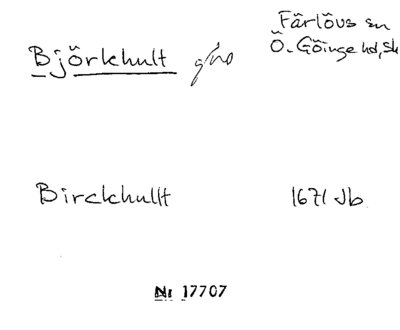 Färlövs sn
Björkhult gd
Ö. Göinge hd, Sk
Birckhullt 1671 Jb
Nr 17707